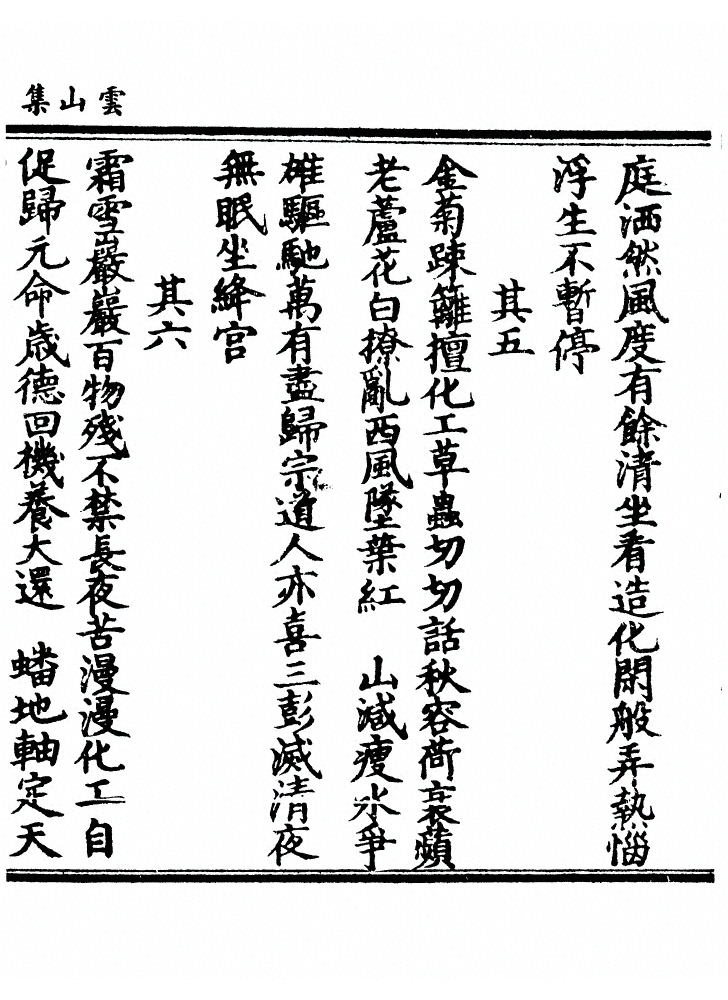 雲山集
庭洒然風度有餘清坐看造化閑般弄熱惱
浮生不暫停
其五
金菊踈籬擅化工草蟲切切話秋容荷衰蘋
老蘆花白撩亂西風墜葉紅　山減瘦水爭
雄驅馳萬有盡歸宗道人亦喜三彭滅清夜
無眠坐絳宮
其六
霜雪巖巖百物殘不禁長夜苦漫漫化工自
促歸元命歲德回機養大還　蟠地軸定天